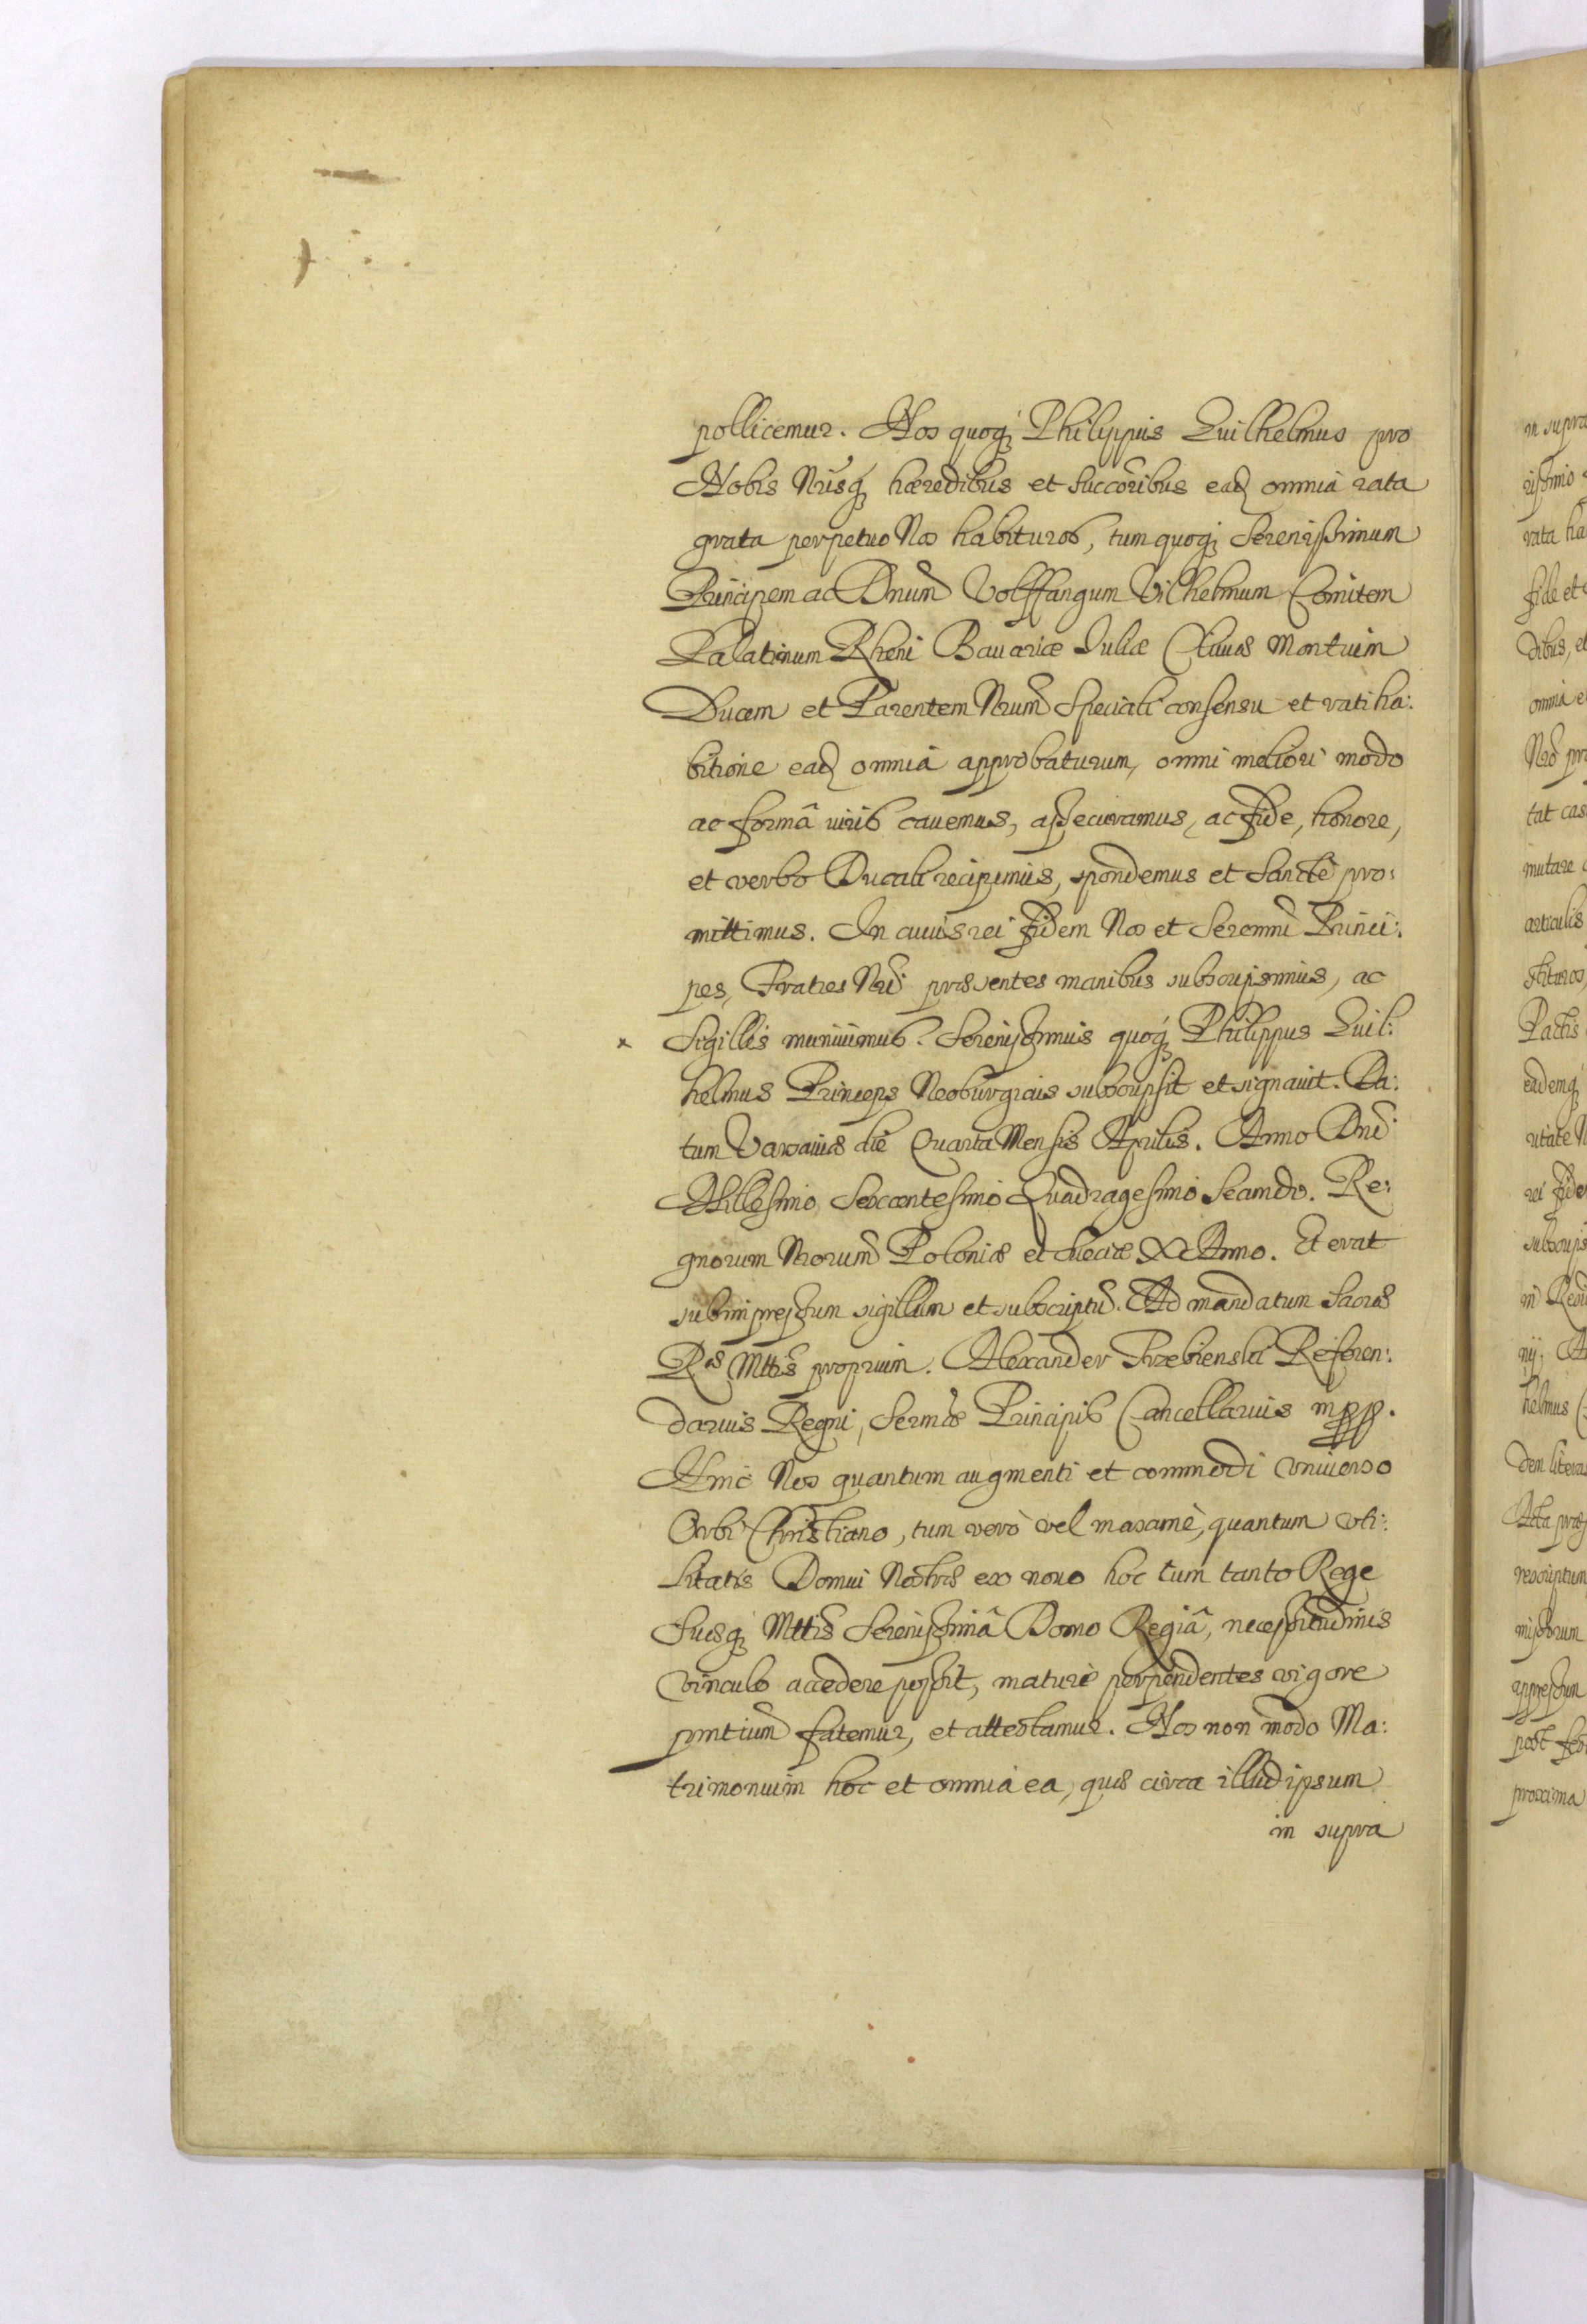 pollicemur. Nos quoq; Philippus Guilhelmus pro
Nobis Nrisq; hæredibus et succoribus eadē omnia rata
grata perpetuo Nos habituros, tum quoq; Serenissimum
Principem ac Dnum Volffangum Vilhelmum Comitem
Palatinum Rheni Bauariæ Juliæ Cliuiæ Montium
Ducem et Parentem Nrum speciali consensu et ratiha:
bitione eadē omnia approbaturum, omni meliori modo
ac formâ iuris cauemus, assecuramus, ac fide, honore,
et verbo Ducali recipimus, spondemus et sanctè pro:
mittimus. In cuius rei fidem Nos et Seremni Princi:
pes, Fratres Nri præsentes manibus subscripsimus, ac
x Sigillis muniuimus. Serenissimus quoq; Philippus Guil:
helmus Princeps Neoburgicus subscripsit et signauit. Da:
tum Varsauiæ die Quarta Mensis Aprilis. Anno Dni
Millesimo Sexcentesimo Quadragesimo Secundo. Re:
gnorum Nrorum Poloniæ et Sueciæ X Anno. Et erat
subimpressum sigillum et subscriptū. Ad mandatum Sacræ
Ræ Mttis proprium. Alexander Trzebienski Referen:
darius Regni, Sermæ Principis Cancellarius mpp.
Hinc Nos quantum augmenti et commodi vniuerso
Orbi Christiano, tum verò vel maxamè, quantum vti:
litatis Domui Nostræ ex nouo hoc cum tanto Rege
Suæq; Mttis Serenissimâ Domo Regiâ, necessitudinis
vinculo accedere possit, maturè perpendentes vigore
pntium fatemur, et attestamur. Nos non modo Ma:
trimonium hoc et omnia ea, quæ circa illud ipsum
in supra